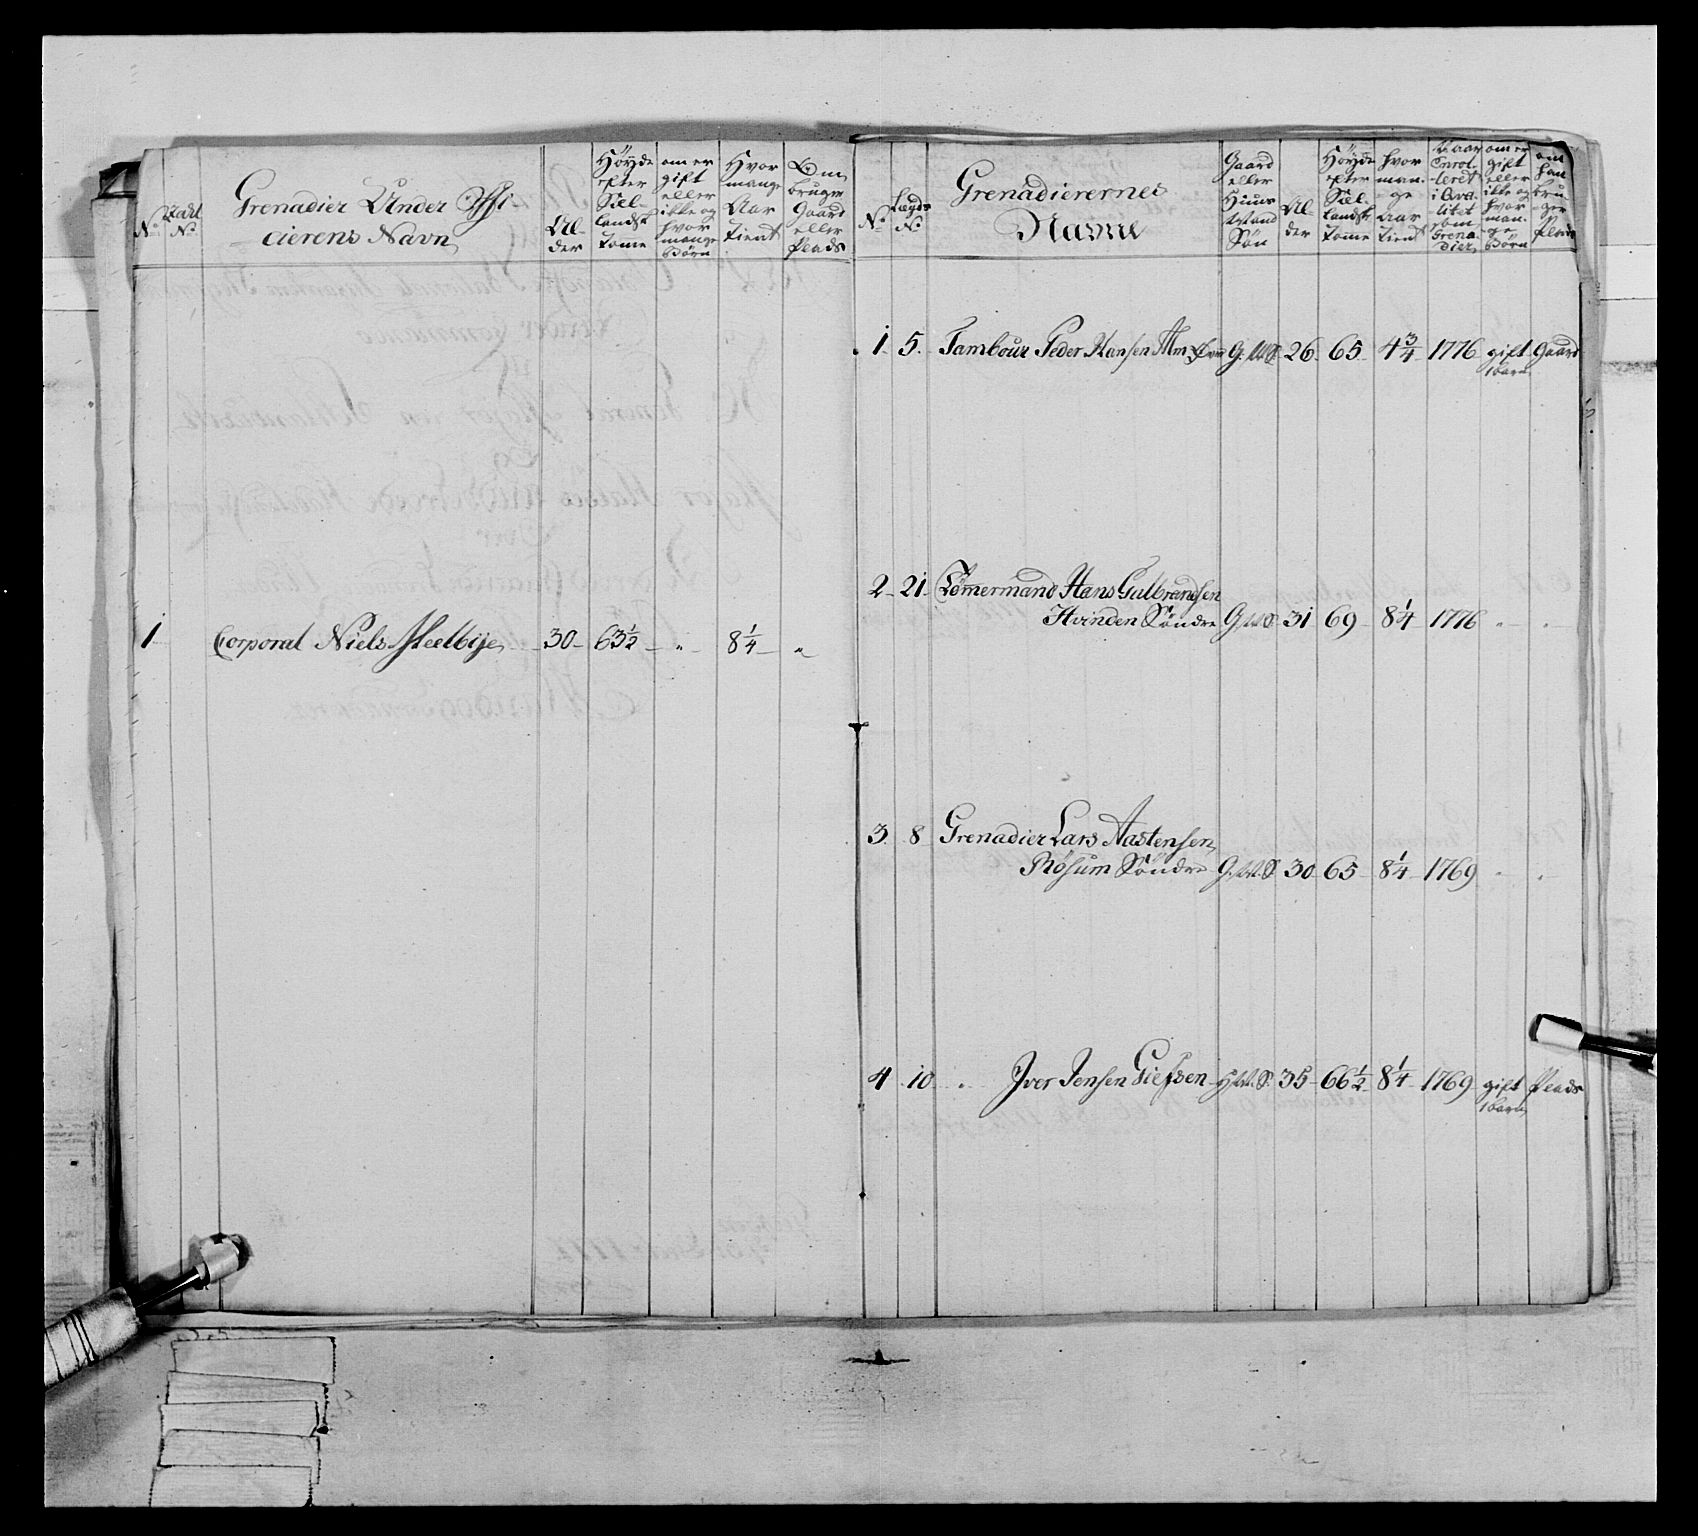 No
Grenadier Under Offi
cierens Navn
Al-
der
Höyde
efter
Siel-
landsk
Tomme
om er
gift
eller
ikke og
hvor
mange
Börn
Hvor
mange
Aar
tient
Om
bruger
Gaard
eller
Plads
1 Corporal Niels 30 63½ " 8¼ "
No
Lægds
No
Grenadierernes
Navne
Gaard
eller
Huus
Mand
Sön
Al-
der
Höyde
efter
Siel-
landsk
Tomme
hvor
man-
ge
Aar
tient
Aar
Enrol-
leret
i
litet
som
Grena-
dier
om er
gift
eller
ikke og
hvor
man-
ge
Börn
om
han
bru-
ger
Plads
1 5 Tambour Peder Hansen G. M. S. 26 65 4¾ 1776 gift Gaard
1 barn
2 21 Tömmermand Hans Gulbrandsen
Hvinden Söndre G. M. S. 31 69 8¼ 1776 " "
3 8 Grenadier Lars Aastensen
Röhum Söndre G. M. S. 30 65 8¼ 1769 " "
4 10 " Iver Jensen H. M. S. 35 66½ 8¼ 1769 gift Plads
1 barn